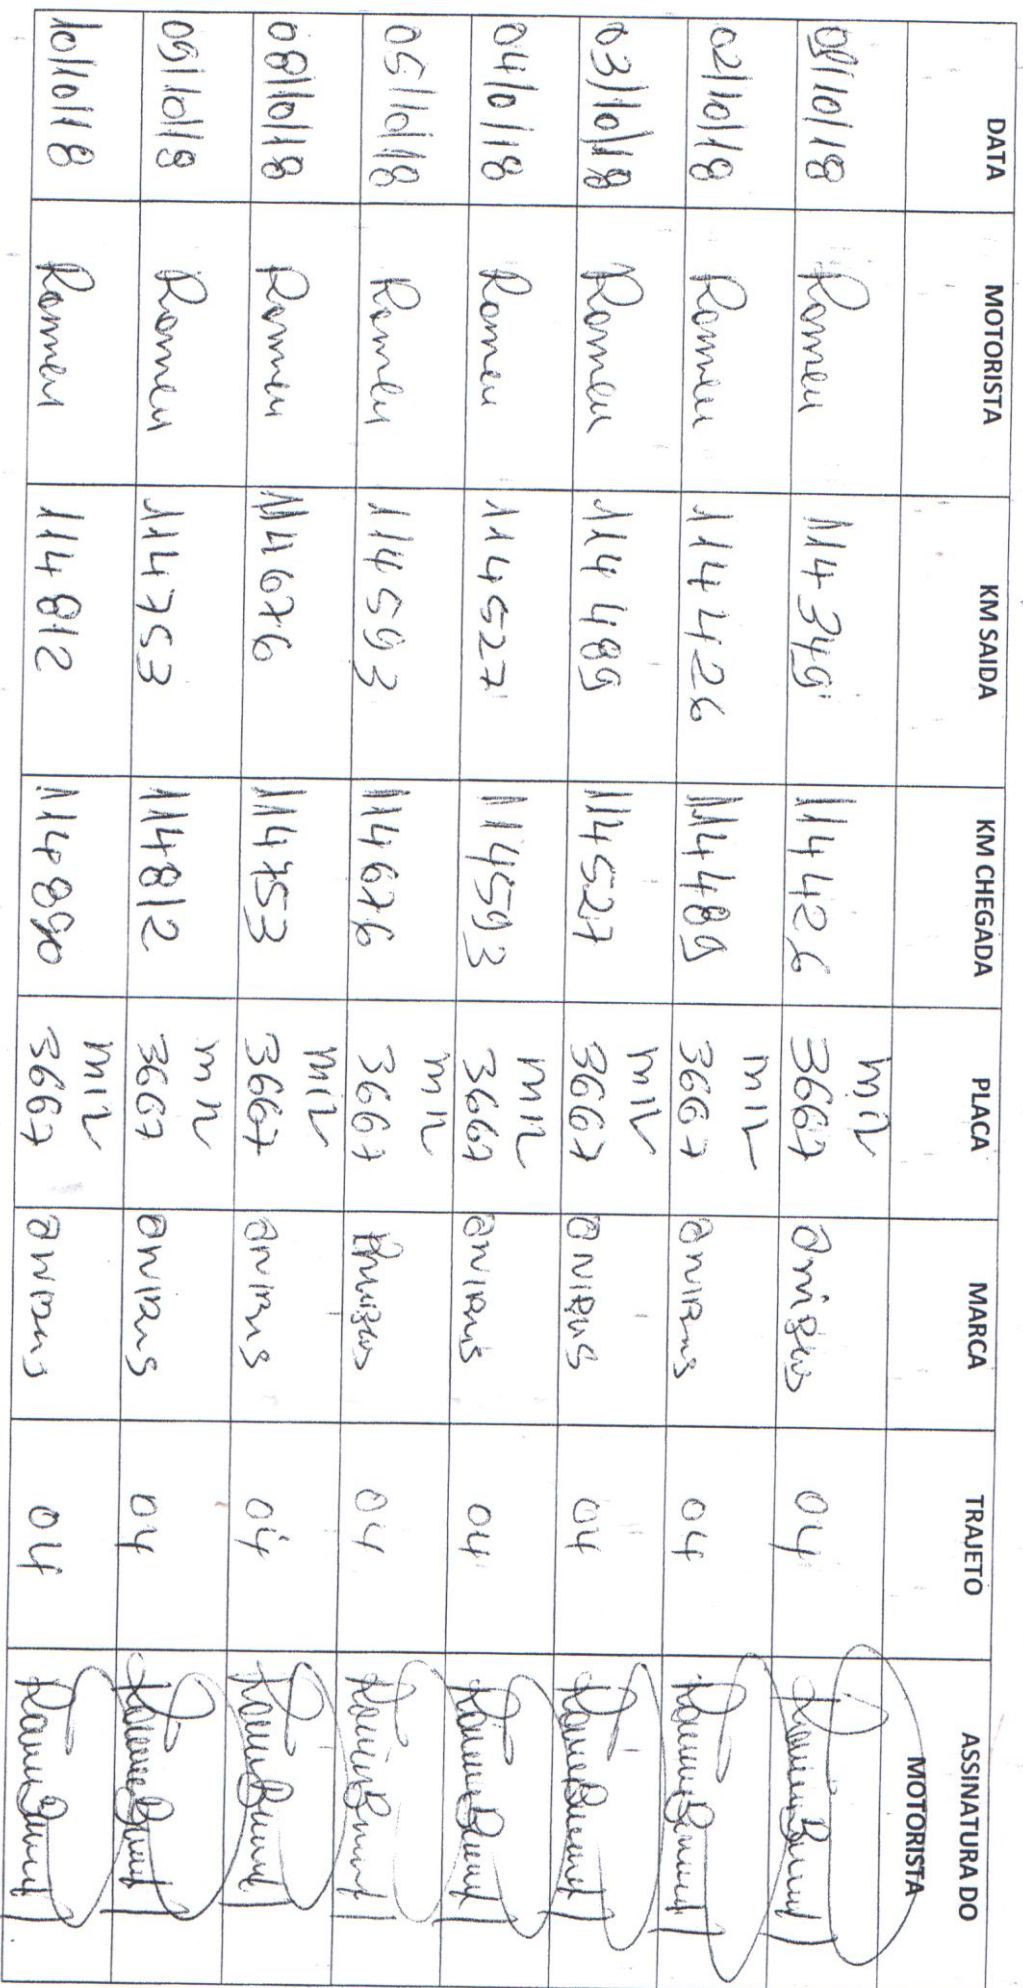 DATA MOTORISTA KM SAIDA KM CHEGADA PLACA MARCA TRAJETO ASSINATURA DO MOTORISTA
01/10/18 Romeu 114349 114426 MIR 3667 onibus 04
02/10/18 Romeu 114426 114489 MIR 3667 oniBus 04
03/10/18 Romeu 114489 114527 MIR 3667 oniBus 04
04/10/18 Romeu 114527 114593 MIR 3667 oniBus 04
05/10/18 Romeu 114593 114676 MIR 3667 onibus 04
08/10/18 Romeu 114676 114753 MIR 3667 oniBus 04
09/10/18 Romeu 114753 114812 MIR 3667 oniBus 04
10/10/18 Romeu 114812 114890 MIR 3667 oniBus 04